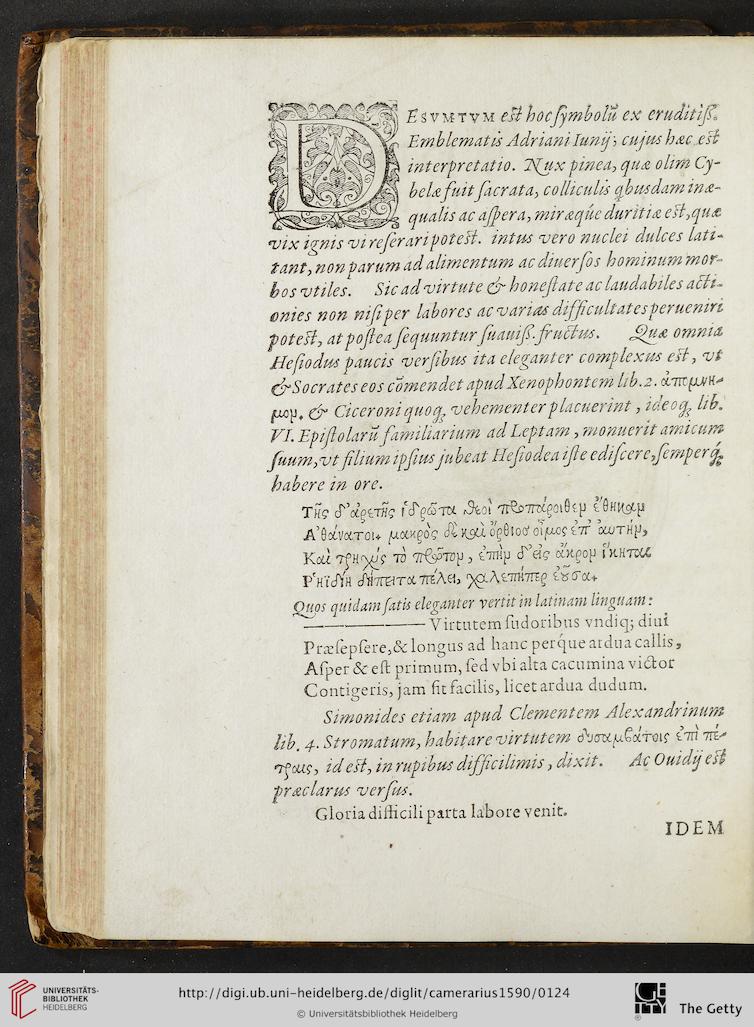 DESVMTVM est hoc symbolū ex eruditiss.
Emblematis Adriani Iunij; cujus hæc est
interpretatio. Nux pinea, quæ olim Cy-
belæ fuit sacrata, colliculis qbusdam inæ-
qualis ac aspera, miræque duritiæ est, quæ
vix ignis vi reserari potest. intus vero nuclei dulces lati-
tant, non parum ad alimentum ac diuersos hominum mor-
bos vtiles. Sic ad virtute & honestate ac laudabiles acti-
onies non nisi per labores ac varias difficultates perueniri
potest, at postea sequuntur suauiss. fructus. Quæ omnia
Hesiodus paucis versibus ita eleganter complexus est, vt
& Socrates eos cōmendet apud Xenophontem lib. 2. ἀπομνη-
μον. & Ciceroni quoq; vehementer placuerint, ideoq; lib.
VI. Epistolarū familiarium ad Leptam, monuerit amicum
suum, vt filium ipsius jubeat Hesiodea iste ediscere, semperq;
habere in ore.
Τῆς δ' ἀρετῆς ἱδρῶτα θεοὶ προπάροιθεν ἔθηκαν
Ἀθάνατοι. μακρὸς δὲ καὶ ὄρθιος οἶμος ἐπ' αὐτήν,
Καὶ τρηχύς τὸ πρῶτον, ἐπὴν δ' εἰς ἄκρον ἵκηται
Ῥηϊδίη δἤπειτα πέλει, χαλεπήπερ ἐοῦσα.
Quos quidam satis eleganter vertit in latinam linguam:
Virtutem sudoribus vndiq; diui
Præsepsere, & longus ad hanc perq́ue ardua callis,
Asper & est primum, sed vbi alta cacumina victor
Contigeris, jam fit facilis, licet ardua dudum.
Simonides etiam apud Clementem Alexandrinum
lib. 4. Stromatum, habitare virtutem δυσαμβάτοις ἐπὶ πέ-
τραις, id est, in rupibus difficilimis, dixit. Ac Ouidij est
præclarus versus.
Gloria difficili parta labore venit.
IDEM
UNIVERSITÄTS-
BIBLIOTHEK
HEIDELBERG
http://digi.ub.uni-heidelberg.de/diglit/camerarius1590/0124
© Universitätsbibliothek Heidelberg
The Getty